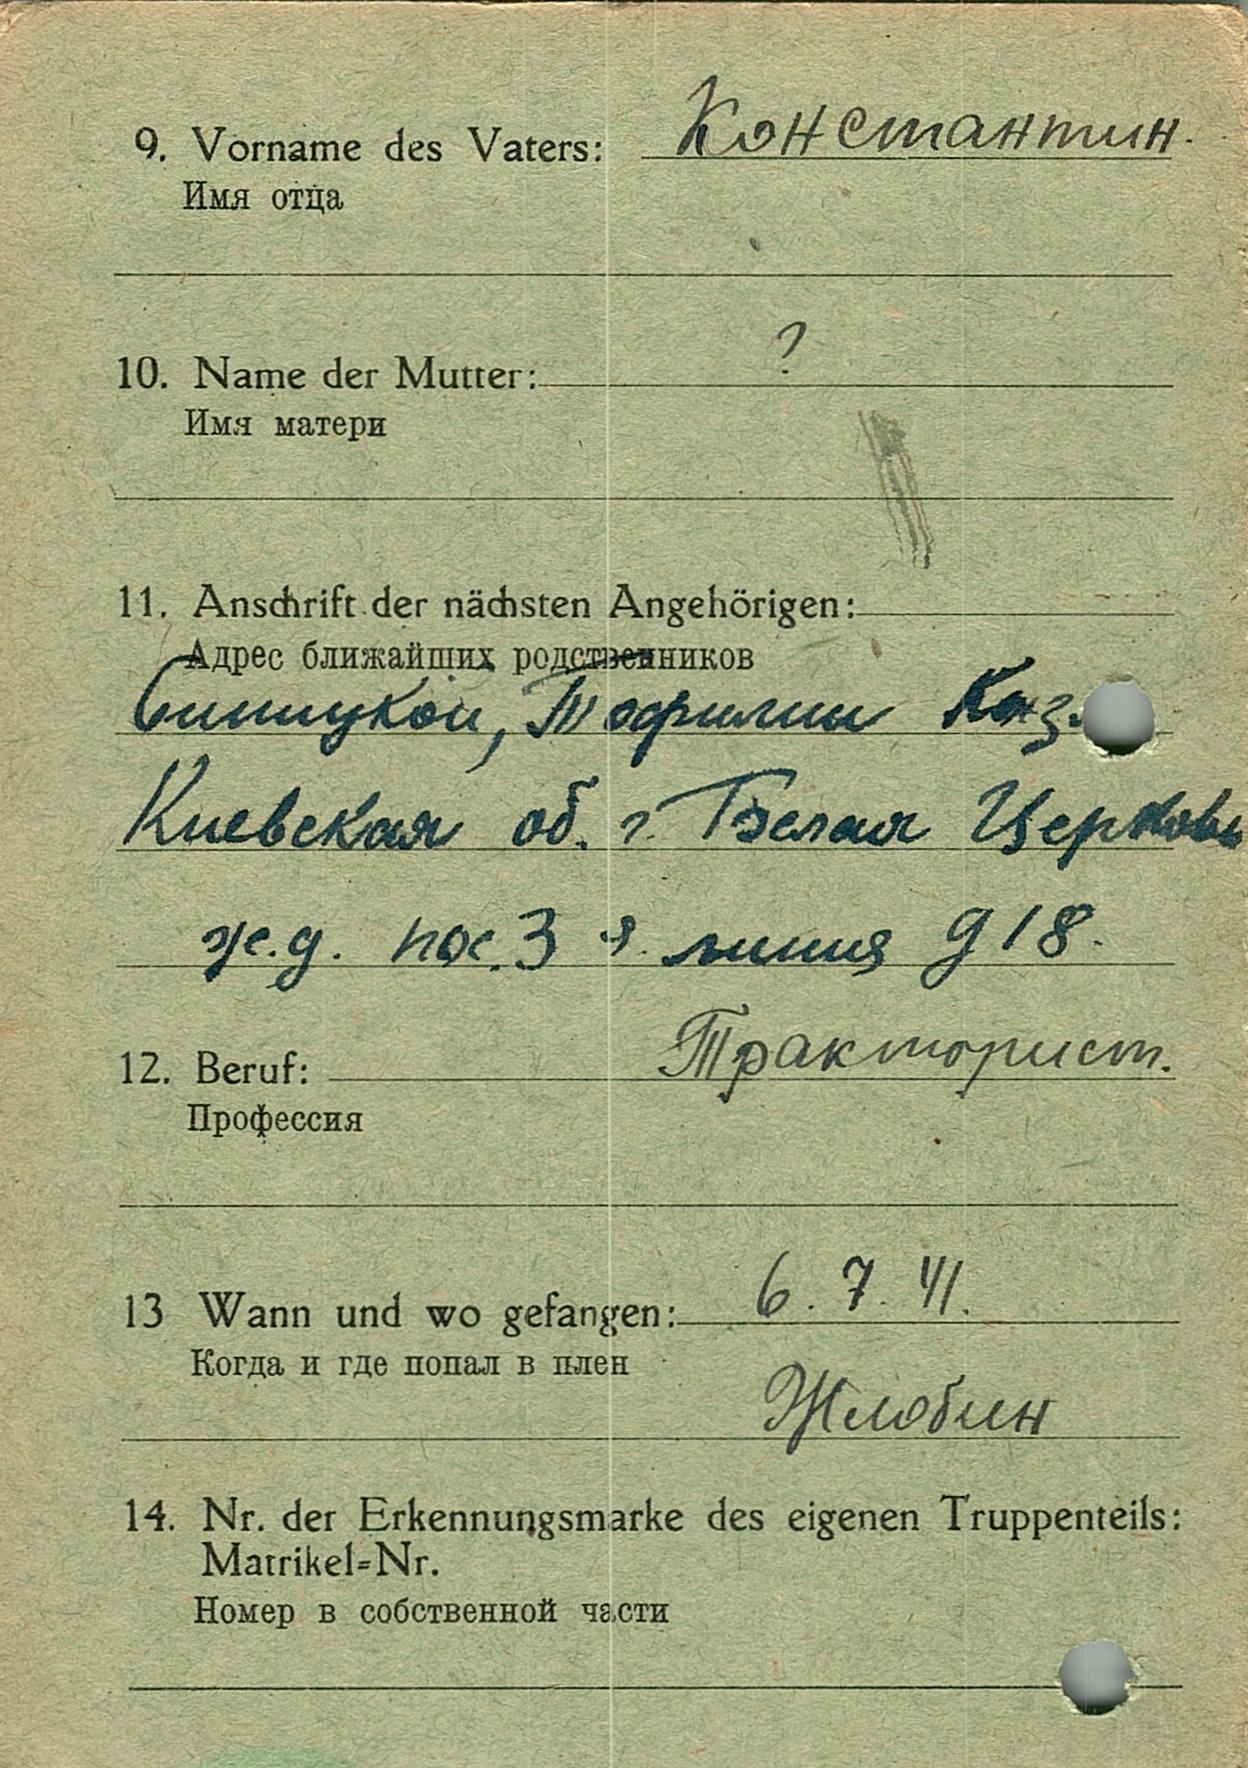 9. Vorname des Vaters: Константин.
Имя отца
10. Name der Mutter: ?
Имя матери
11. Anschrift der nächsten Angehörigen:
Адрес ближайших родственников
Синицкой, Тофилии
Киевская об. г. Белая Церковь
ж.д. пос. 3 я. линия д 18.
12. Beruf: Тракторист.
Профессия
13 Wann und wo gefangen: 6. 7. 41.
Когда и где попал в плен
Жлобин
14. Nr. der Erkennungsmarke des eigenen Truppenteils:
Matrikel=Nr.
Номер в собственной части